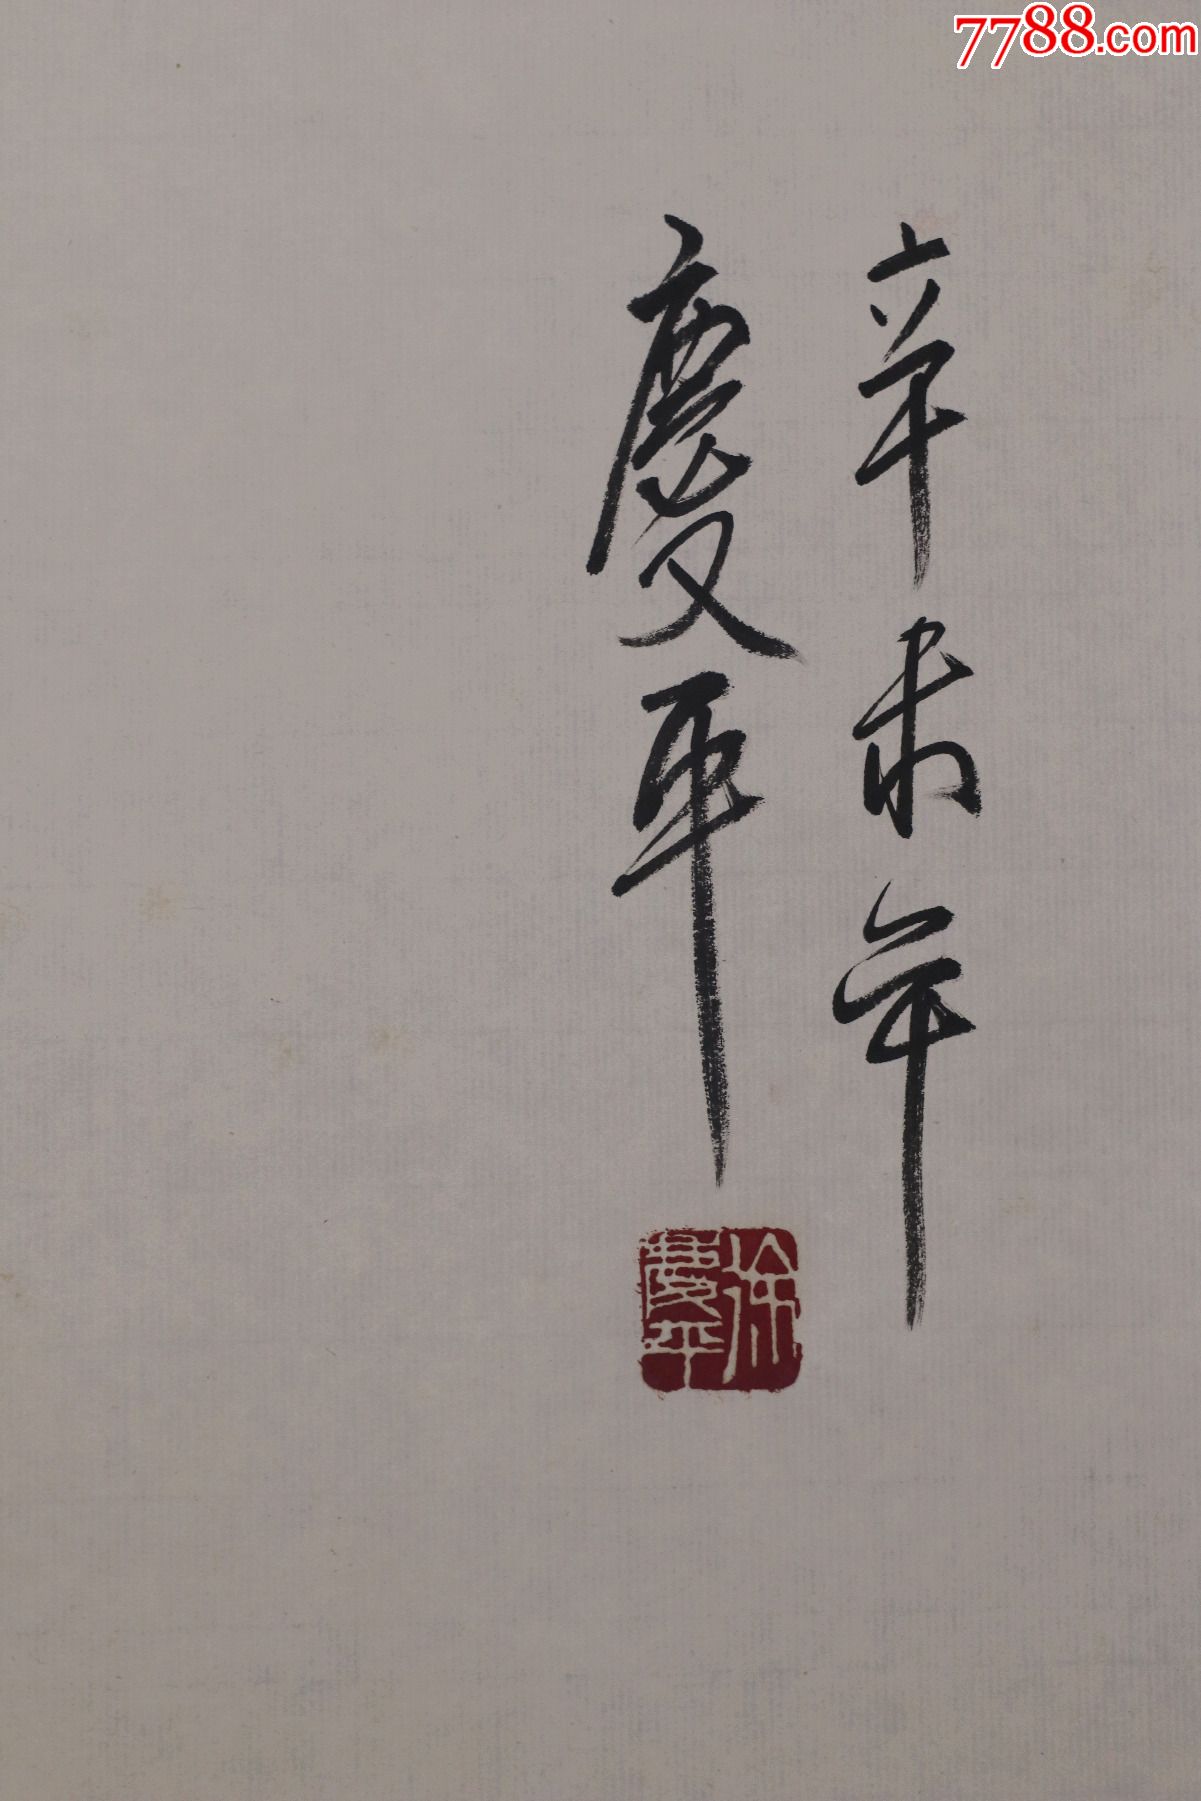 7788.com
辛未年
慶平
徐
慶平